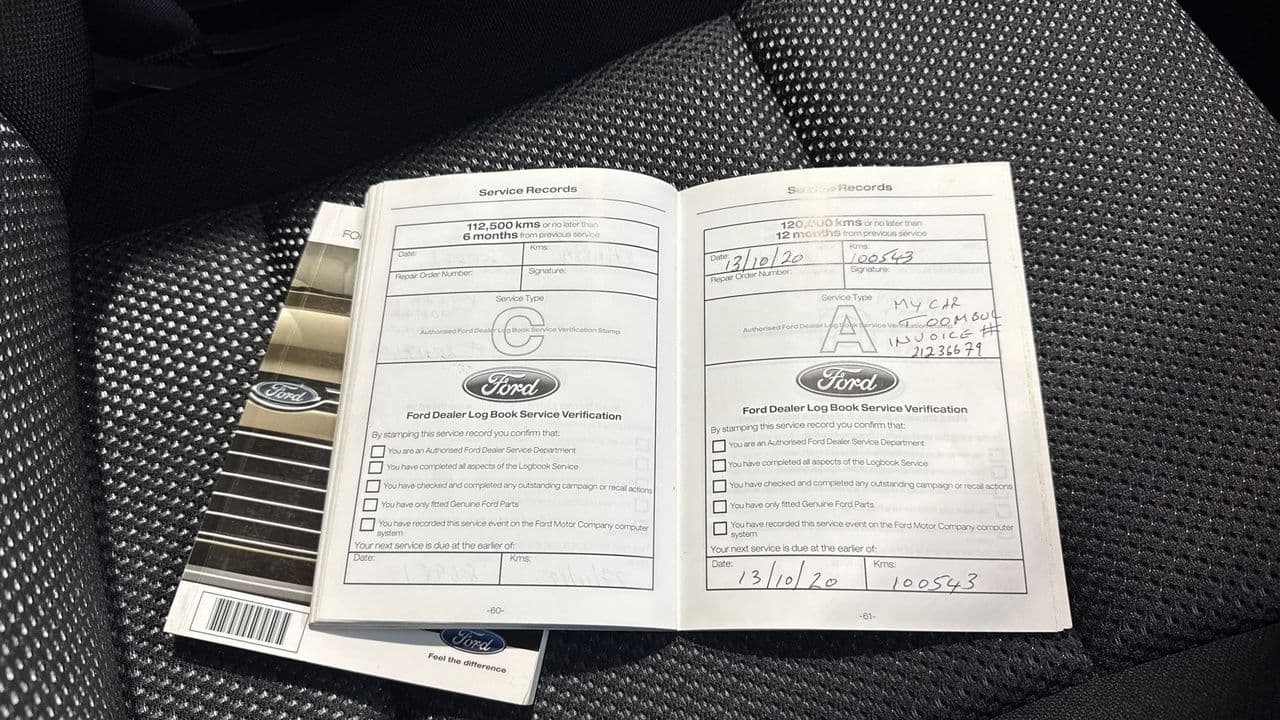 FO
Ford
Ford
Feel the difference
Service Records
112,500 kms or no later than
6 months from previous service
Date:
Kms:
Repair Order Number:
Signature:
Service Type
C
Authorised Ford Dealer Log Book Service Verification Stamp
Ford
Ford Dealer Log Book Service Verification
By stamping this service record you confirm that:
You are an Authorised Ford Dealer Service Department
You have completed all aspects of the Logbook Service
You have checked and completed any outstanding campaign or recall actions
You have only fitted Genuine Ford Parts
You have recorded this service event on the Ford Motor Company computer
system
Your next service is due at the earlier of:
Date:
Kms:
-60-
Service Records
120,000 kms or no later than
12 months from previous service
Date: 13/10/20
Kms: 100543
Repair Order Number:
Signature:
Service Type
A
Authorised Ford Dealer Log Book Service Verification
MY CAR
TOOMBUL
INVOICE #
21236679
Ford
Ford Dealer Log Book Service Verification
By stamping this service record you confirm that:
You are an Authorised Ford Dealer Service Department
You have completed all aspects of the Logbook Service
You have checked and completed any outstanding campaign or recall actions
You have only fitted Genuine Ford Parts
You have recorded this service event on the Ford Motor Company computer
system
Your next service is due at the earlier of:
Date: 13/10/20
Kms: 100543
-61-